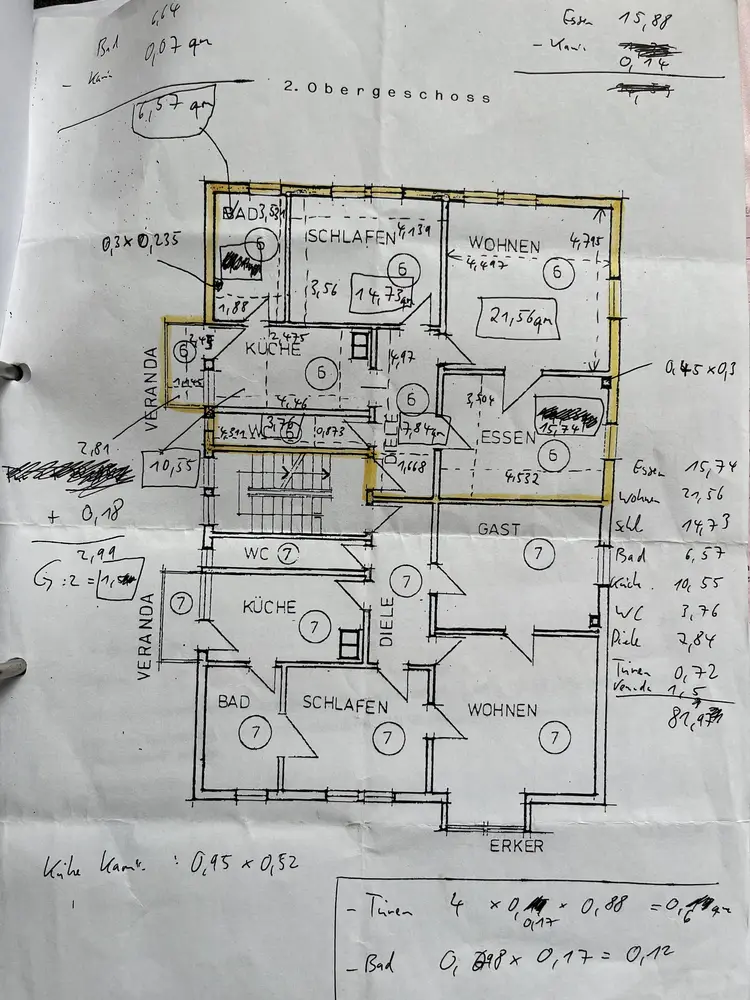 6,64
Bad 0,07 qm
- Kam
6,57 qm
Essen 15,88
- Kam. 0,14
2. Obergeschoss
0,3 x 0,235
BAD 3,531
6
1,88
SCHLAFEN 4,139
6
3,56
14,73 qm
WOHNEN 4,795
4,497
6
21,56 qm
VERANDA
6
2,45
1,145
KÜCHE 2,475
6
4,46
4,97
0,45 x 0,3
DIELE
6
7,84 qm
1,668
3,504
15,74
ESSEN
6
4,532
4,311 WC 3,76 0,873
6
2,81
10,55
+ 0,18
2,99
G : 2 =
Essen 15,74
Wohnen 21,56
Schl 14,73
Bad 6,57
Küch. 10,55
WC 3,76
Diele 7,84
Türen 0,72
Veranda 1,5
GAST
7
WC 7
VERANDA
7
KÜCHE
7
DIELE
7
BAD
7
SCHLAFEN
7
WOHNEN
7
ERKER
Kühe Kamin : 0,95 x 0,52
- Türen 4 x 0,17 x 0,88 =
- Bad x 0,17 = 0,12